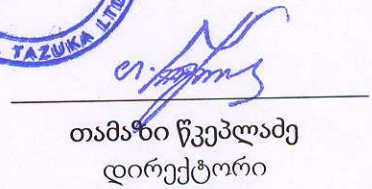 TAZUKA LTD
თამაზი წკეპლაძე
დირექტორი